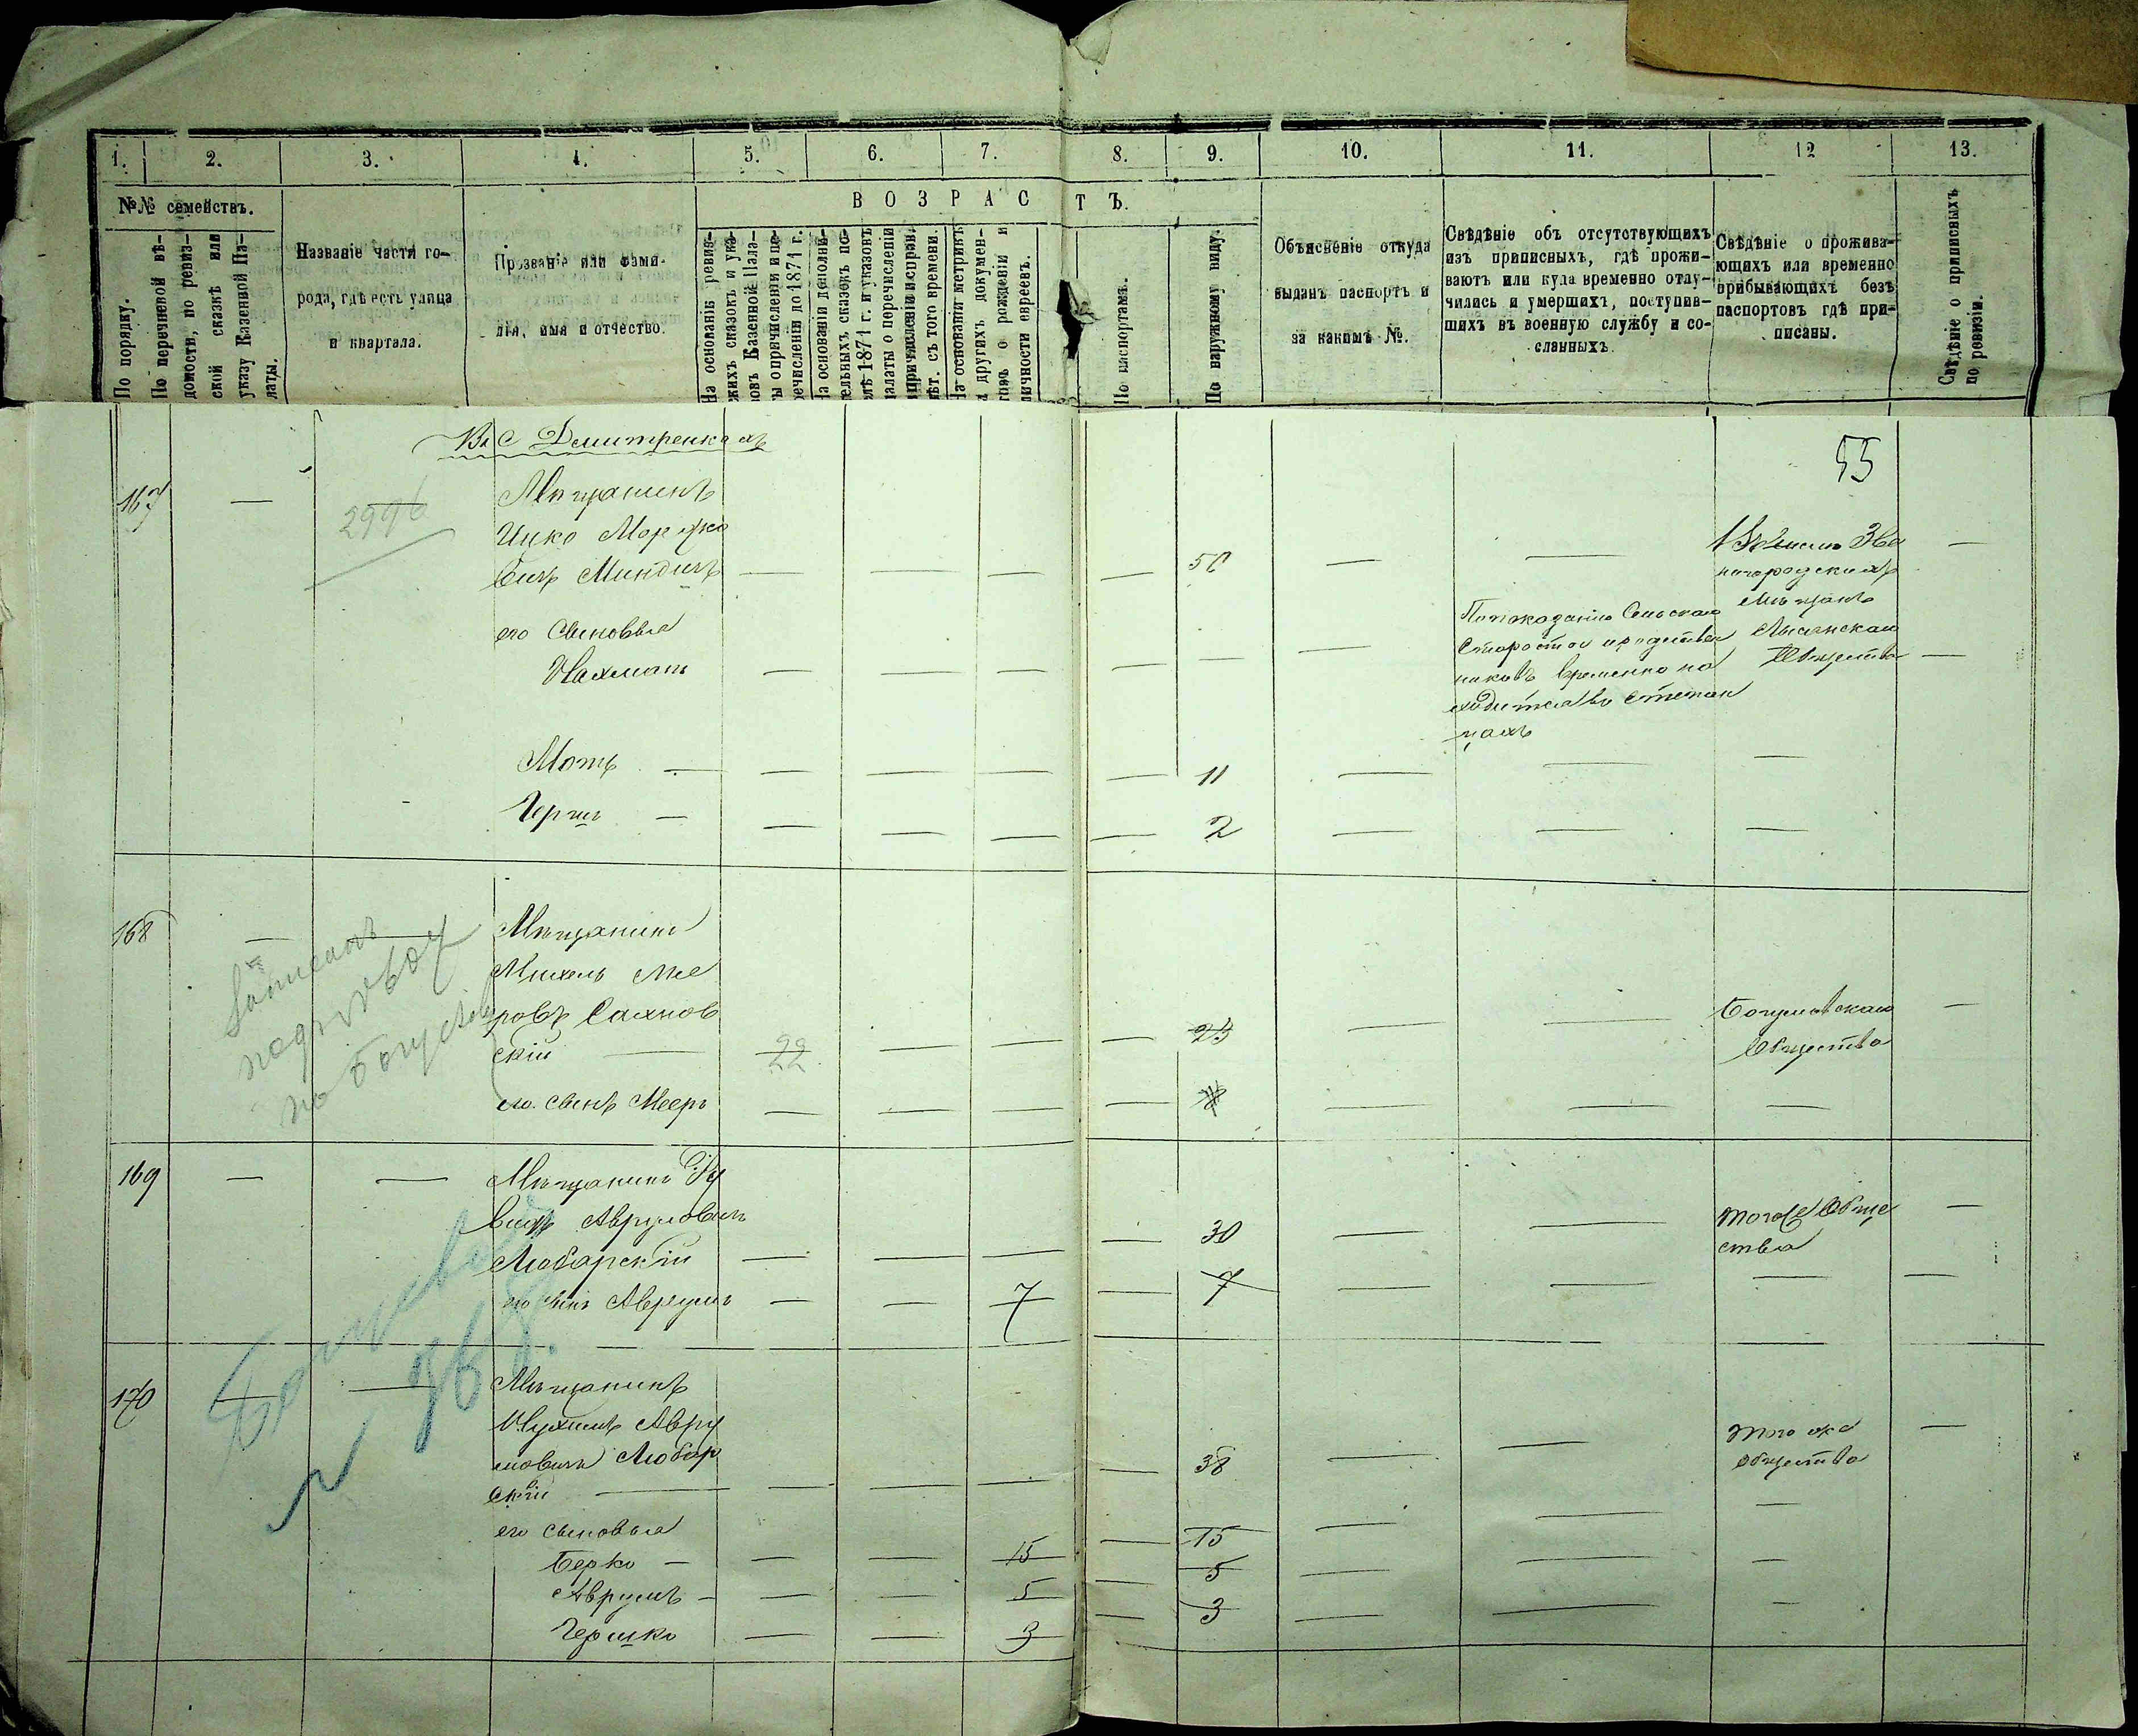 1. 2. 3. 4. 5. 6. 7. 8. 9. 10. 11. 12 13.
№№ семействъ.
По порядку.
По перечневой вѣ-
домости, по ревиз-
ской сказкѣ или
указу Казенной Па-
латы.
Названіе части го-
рода, гдѣ есть улица
и квартала.
Прозваніе или фами-
лія, имя и отчество.
ВОЗРАСТЪ.
На основаніи ревиз-
скихъ сказокъ и ука-
зовъ Казенной Пала-
ты о причисленіи и пе-
речисленіи до 1871 г.
На основаніи дополни-
тельныхъ сказокъ по-
слѣ 1871 г. и указовъ
палаты о перечисленіи
и причисленіи
лѣт. съ того времени.
На основаніи метрикъ
и другихъ докумен-
товъ о рожденіи и
личности евреевъ.
По паспортамъ.
По наружному виду.
Объясненіе откуда
выданъ паспортъ и
за какимъ №.
Свѣдѣніе объ отсутствующихъ
изъ приписныхъ, гдѣ прожи-
ваютъ или куда временно отлу-
чились и умершихъ, поступив-
шихъ въ военную службу и со-
сланныхъ.
Свѣдѣніе о прожива-
ющихъ или временно
прибывающихъ безъ
паспортовъ гдѣ при-
писаны.
Свѣдѣніе о приписныхъ
по ревизіи.
Въ С Дмитренкахъ
55
167 — 2996
Мѣщанинъ
Ицко Моршко
вичъ Миндичъ — — — — 50 — —
Звѣ
нигородскихъ
мѣщанъ
Лысянскаго
Общества
его сыновья
Нахманъ — — — — — —
По показанію Сельскаго
Старосты и родствен
никовъ временно на
ходится въ Степан
цахъ
Мотъ — — — — — 11 — — —
Гершъ — — — — — 2 — — —
168 — —
Записанъ
подъ № 604
по Богуслав
Мѣщанинъ
Михель Ме
ровъ Сахнов
скій — 22 — — — 23 — —
Богуславскаго
Общества
его сынъ Мееръ — — — — — — —
169 — —
Мѣщанинъ Ру
винъ Аврумовичъ
Любарскій — — — — 30 — —
тогоже Обще
ства
его сынъ Аврумъ — — 7 — 7 — — — —
170 — —
Мѣщанинъ
Нухимъ Авру
мовичъ Любар
скій — — — — — 38 — —
того же
общества
его сыновья
Берко — — — 15 — 15 — — —
Аврумъ — — — 5 — 5 — — —
Гершко — — 3 — 3 — — —